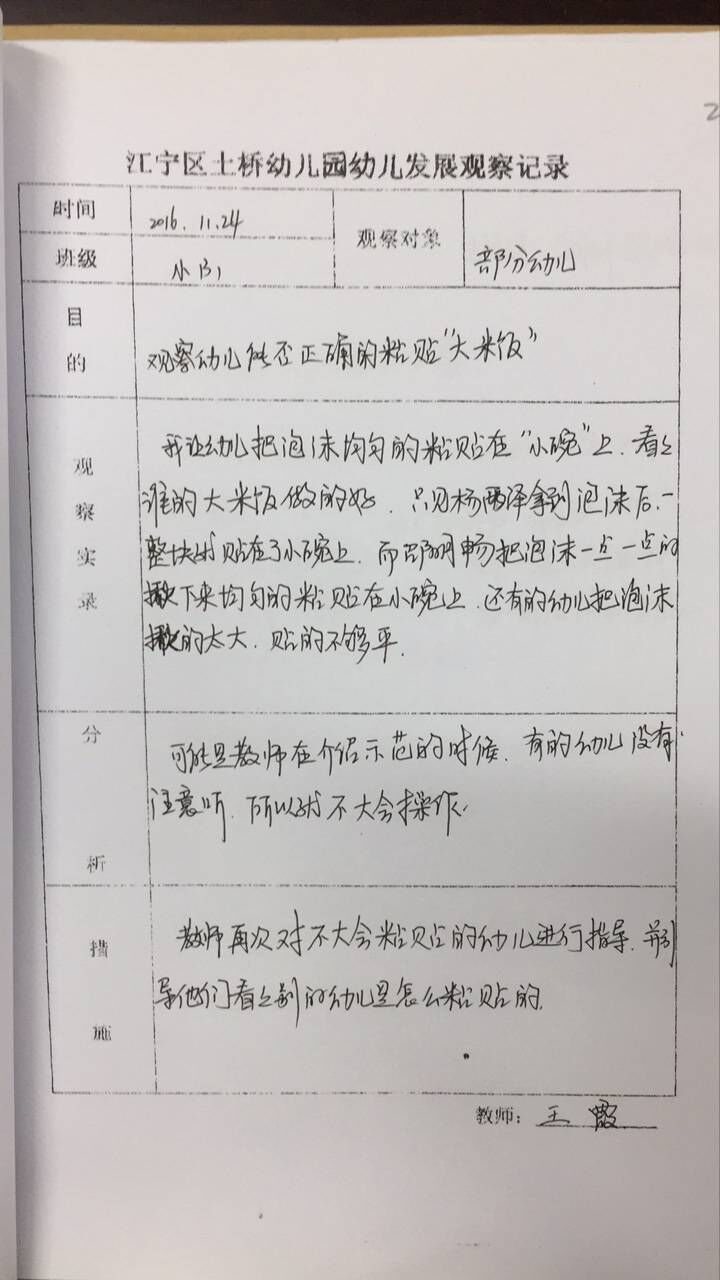 2
江宁区土桥幼儿园幼儿发展观察记录
时间 2016.11.24 观察对象 部分幼儿
班级 小(3)
目的 观察幼儿能否正确的粘贴“大米饭”
观察实录 我让幼儿把泡沫均匀的粘贴在“小碗”上.看々
谁的大米饭做的好.只见杨雨泽拿到泡沫后.一
整块就贴在了小碗上.而邵明畅把泡沫一点一点的
揪下来均匀的粘贴在小碗上.还有的幼儿把泡沫
揪的太大.贴的不够平.
分析 可能是教师在介绍示范的时候.有的幼儿没有
注意听.所以就不大会操作.
措施 教师再次对不大会粘贴的幼儿进行指导.并引
导他们看々别的幼儿是怎么粘贴的.
教师：王霞